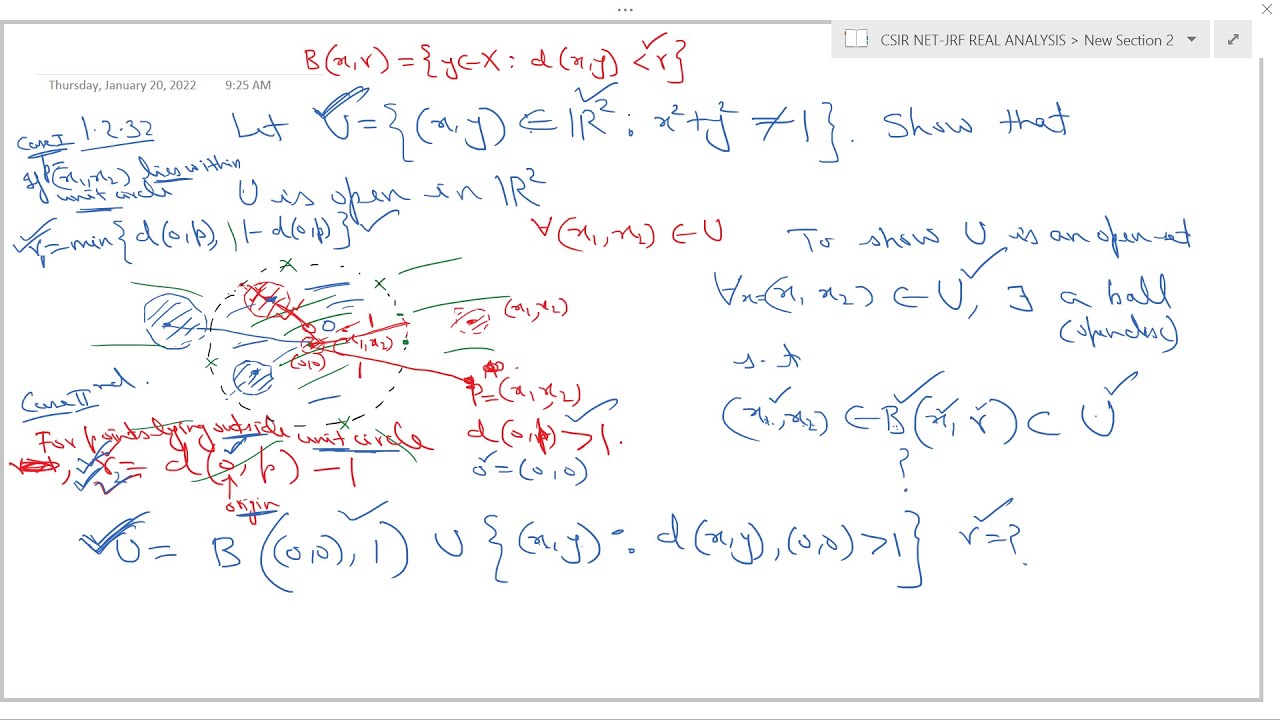 CSIR NET-JRF REAL ANALYSIS > New Section 2
B(x,r) = {y∈X : d(x,y) < r}
Thursday, January 20, 2022 9:25 AM
1.2.32 Let U = {(x,y) ∈ ℝ² : x²+y² ≠ 1}. Show that
U is open in ℝ²
Case I
If p=(x₁,x₂) lies within
unit circle
r₁ = min{d(0,p), 1-d(0,p)}
∀(x₁,x₂) ∈ U
To show U is an open set
∀x=(x₁,x₂) ∈ U, ∃ a ball
(open disc)
s.t
(x₁,x₂) ∈ B(x,r) ⊂ U
?
(x₁,x₂)
0
1
(x₁,x₂)
(0,0)
1
p=(x₁,x₂)
d(0,p) > 1.
0=(0,0)
Case II nd.
For points lying outside unit circle
, r₂ = d(0,p) - 1
origin
U = B((0,0),1) ∪ {(x,y) : d(x,y),(0,0) > 1} r=?